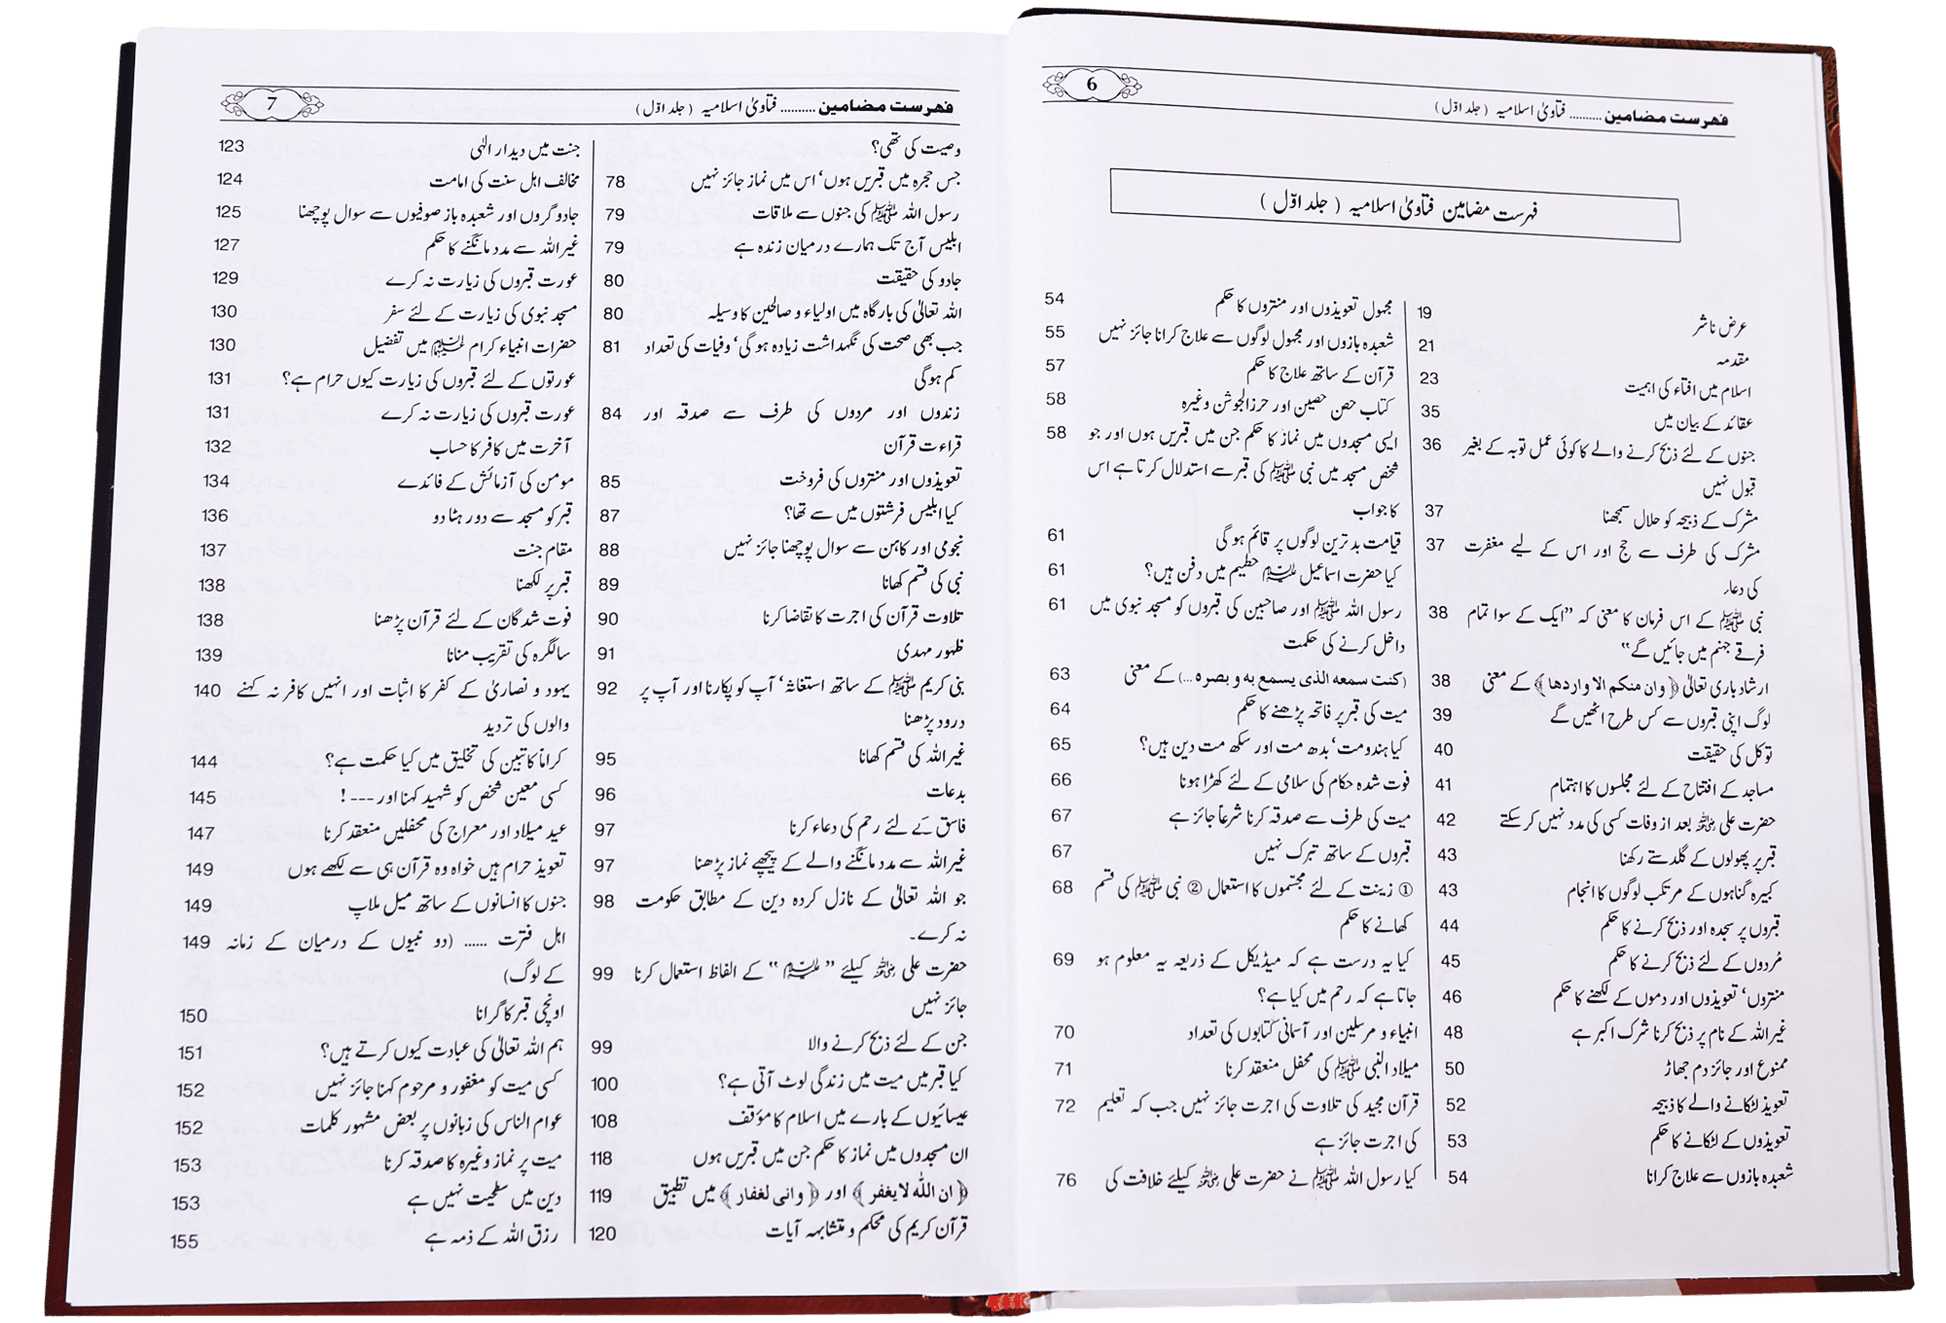 6
فہرست مضامین .......... فتاویٰ اسلامیہ ( جلد اوّل )
فہرست مضامین فتاویٰ اسلامیہ ( جلد اوّل )
عرض ناشر 19
مقدمہ 21
اسلام میں افتاء کی اہمیت 23
عقائد کے بیان میں 35
جنوں کے لئے ذبح کرنے والے کا کوئی عمل توبہ کے بغیر 36
قبول نہیں
مشرک کے ذبیحہ کو حلال سمجھنا 37
مشرک کی طرف سے حج اور اس کے لیے مغفرت 37
کی دعاء
نبی ﷺ کے اس فرمان کا معنی کہ ”ایک کے سوا تمام 38
فرقے جہنم میں جائیں گے“
ارشاد باری تعالیٰ ﴿وان منکم الا واردھا﴾ کے معنی 38
لوگ اپنی قبروں سے کس طرح اٹھیں گے 39
توکل کی حقیقت 40
مساجد کے افتتاح کے لئے مجلسوں کا اہتمام 41
حضرت علی رضی اللہ عنہ بعد از وفات کسی کی مدد نہیں کر سکتے 42
قبر پر پھولوں کے گلدستے رکھنا 43
کبیرہ گناہوں کے مرتکب لوگوں کا انجام 43
قبروں پر سجدہ اور ذبح کرنے کا حکم 44
مُردوں کے لئے ذبح کرنے کا حکم 45
منتروں‘ تعویذوں اور دموں کے لکھنے کا حکم 46
غیر اللہ کے نام پر ذبح کرنا شرک اکبر ہے 48
ممنوع اور جائز دم جھاڑ 50
تعویذ لٹکانے والے کا ذبیحہ 52
تعویذوں کے لٹکانے کا حکم 53
شعبدہ بازوں سے علاج کرانا 54
مجہول تعویذوں اور منتروں کا حکم 54
شعبدہ بازوں اور مجہول لوگوں سے علاج کرانا جائز نہیں 55
قرآن کے ساتھ علاج کا حکم 57
کتاب حصن حصین اور حرز الجوشن وغیرہ 58
ایسی مسجدوں میں نماز کا حکم جن میں قبریں ہوں اور جو 58
شخص مسجد میں نبی ﷺ کی قبر سے استدلال کرتا ہے اس
کا جواب
قیامت بد ترین لوگوں پر قائم ہو گی 61
کیا حضرت اسماعیل علیہ السلام حطیم میں دفن ہیں؟ 61
رسول اللہ ﷺ اور صاحبین کی قبروں کو مسجد نبوی میں 61
داخل کرنے کی حکمت
(کنت سمعه الذی یسمع به و بصره ...) کے معنی 63
میت کی قبر پر فاتحہ پڑھنے کا حکم 64
کیا ہندومت‘ بدھ مت اور سکھ مت دین ہیں؟ 65
فوت شدہ حکام کی سلامی کے لئے کھڑا ہونا 66
میت کی طرف سے صدقہ کرنا شرعاً جائز ہے 67
قبروں کے ساتھ تبرک نہیں 67
① زینت کے لئے مجسّموں کا استعمال ② نبی ﷺ کی قسم 68
کھانے کا حکم
کیا یہ درست ہے کہ میڈیکل کے ذریعہ یہ معلوم ہو 69
جاتا ہے کہ رحم میں کیا ہے؟
انبیاء و مرسلین اور آسمانی کتابوں کی تعداد 70
میلاد النبی ﷺ کی محفل منعقد کرنا 71
قرآن مجید کی تلاوت کی اجرت جائز نہیں جب کہ تعلیم 72
کی اجرت جائز ہے
کیا رسول اللہ ﷺ نے حضرت علی رضی اللہ عنہ کیلئے خلافت کی 76
7
فہرست مضامین .......... فتاویٰ اسلامیہ ( جلد اوّل )
وصیت کی تھی؟
جس حجرہ میں قبریں ہوں‘ اس میں نماز جائز نہیں 78
رسول اللہ ﷺ کی جنوں سے ملاقات 79
ابلیس آج تک ہمارے درمیان زندہ ہے 79
جادو کی حقیقت 80
اللہ تعالیٰ کی بارگاہ میں اولیاء و صالحین کا وسیلہ 80
جب بھی صحت کی نگہداشت زیادہ ہو گی‘ وفیات کی تعداد 81
کم ہوگی
زندوں اور مردوں کی طرف سے صدقہ اور 84
قراءت قرآن
تعویذوں اور منتروں کی فروخت 85
کیا ابلیس فرشتوں میں سے تھا؟ 87
نجومی اور کاہن سے سوال پوچھنا جائز نہیں 88
نبی کی قسم کھانا 89
تلاوت قرآن کی اجرت کا تقاضا کرنا 90
ظہور مہدی 91
نبی کریم ﷺ کے ساتھ استغاثہ‘ آپ کو پکارنا اور آپ پر 92
درود پڑھنا
غیر اللہ کی قسم کھانا 95
بدعات 96
فاسق کے لئے رحم کی دعاء کرنا 97
غیر اللہ سے مدد مانگنے والے کے پیچھے نماز پڑھنا 97
جو اللہ تعالیٰ کے نازل کردہ دین کے مطابق حکومت 98
نہ کرے۔
حضرت علی رضی اللہ عنہ کیلئے ”علیہ السلام“ کے الفاظ استعمال کرنا 99
جائز نہیں
جن کے لئے ذبح کرنے والا 99
کیا قبر میں میت میں زندگی لوٹ آتی ہے؟ 100
عیسائیوں کے بارے میں اسلام کا مؤقف 108
ان مسجدوں میں نماز کا حکم جن میں قبریں ہوں 118
﴿ان اللّٰه لا یغفر﴾ اور ﴿وانی لغفار﴾ میں تطبیق 119
قرآن کریم کی محکم و متشابہ آیات 120
جنت میں دیدار الٰہی 123
مخالف اہل سنت کی امامت 124
جادوگروں اور شعبدہ باز صوفیوں سے سوال پوچھنا 125
غیر اللہ سے مدد مانگنے کا حکم 127
عورت قبروں کی زیارت نہ کرے 129
مسجد نبوی کی زیارت کے لئے سفر 130
حضرات انبیاء کرام علیہم السلام میں تفضیل 130
عورتوں کے لئے قبروں کی زیارت کیوں حرام ہے؟ 131
عورت قبروں کی زیارت نہ کرے 131
آخرت میں کافر کا حساب 132
مومن کی آزمائش کے فائدے 134
قبر کو مسجد سے دور ہٹا دو 136
مقام جنت 137
قبر پر لکھنا 138
فوت شدگان کے لئے قرآن پڑھنا 138
سالگرہ کی تقریب منانا 139
یہود و نصاریٰ کے کفر کا اثبات اور انہیں کافر نہ کہنے 140
والوں کی تردید
کراماً کاتبین کی تخلیق میں کیا حکمت ہے؟ 144
کسی معین شخص کو شہید کہنا اور ---! 145
عید میلاد اور معراج کی محفلیں منعقد کرنا 147
تعویذ حرام ہیں خواہ وہ قرآن ہی سے لکھے ہوں 149
جنوں کا انسانوں کے ساتھ میل ملاپ 149
اہل فترت ...... (دو نبیوں کے درمیان کے زمانہ 149
کے لوگ)
اونچی قبر کا گرانا 150
ہم اللہ تعالیٰ کی عبادت کیوں کرتے ہیں؟ 151
کسی میت کو مغفور و مرحوم کہنا جائز نہیں 152
عوام الناس کی زبانوں پر بعض مشہور کلمات 152
میت پر نماز وغیرہ کا صدقہ کرنا 153
دین میں سطحیت نہیں ہے 153
رزق اللہ کے ذمہ ہے 155